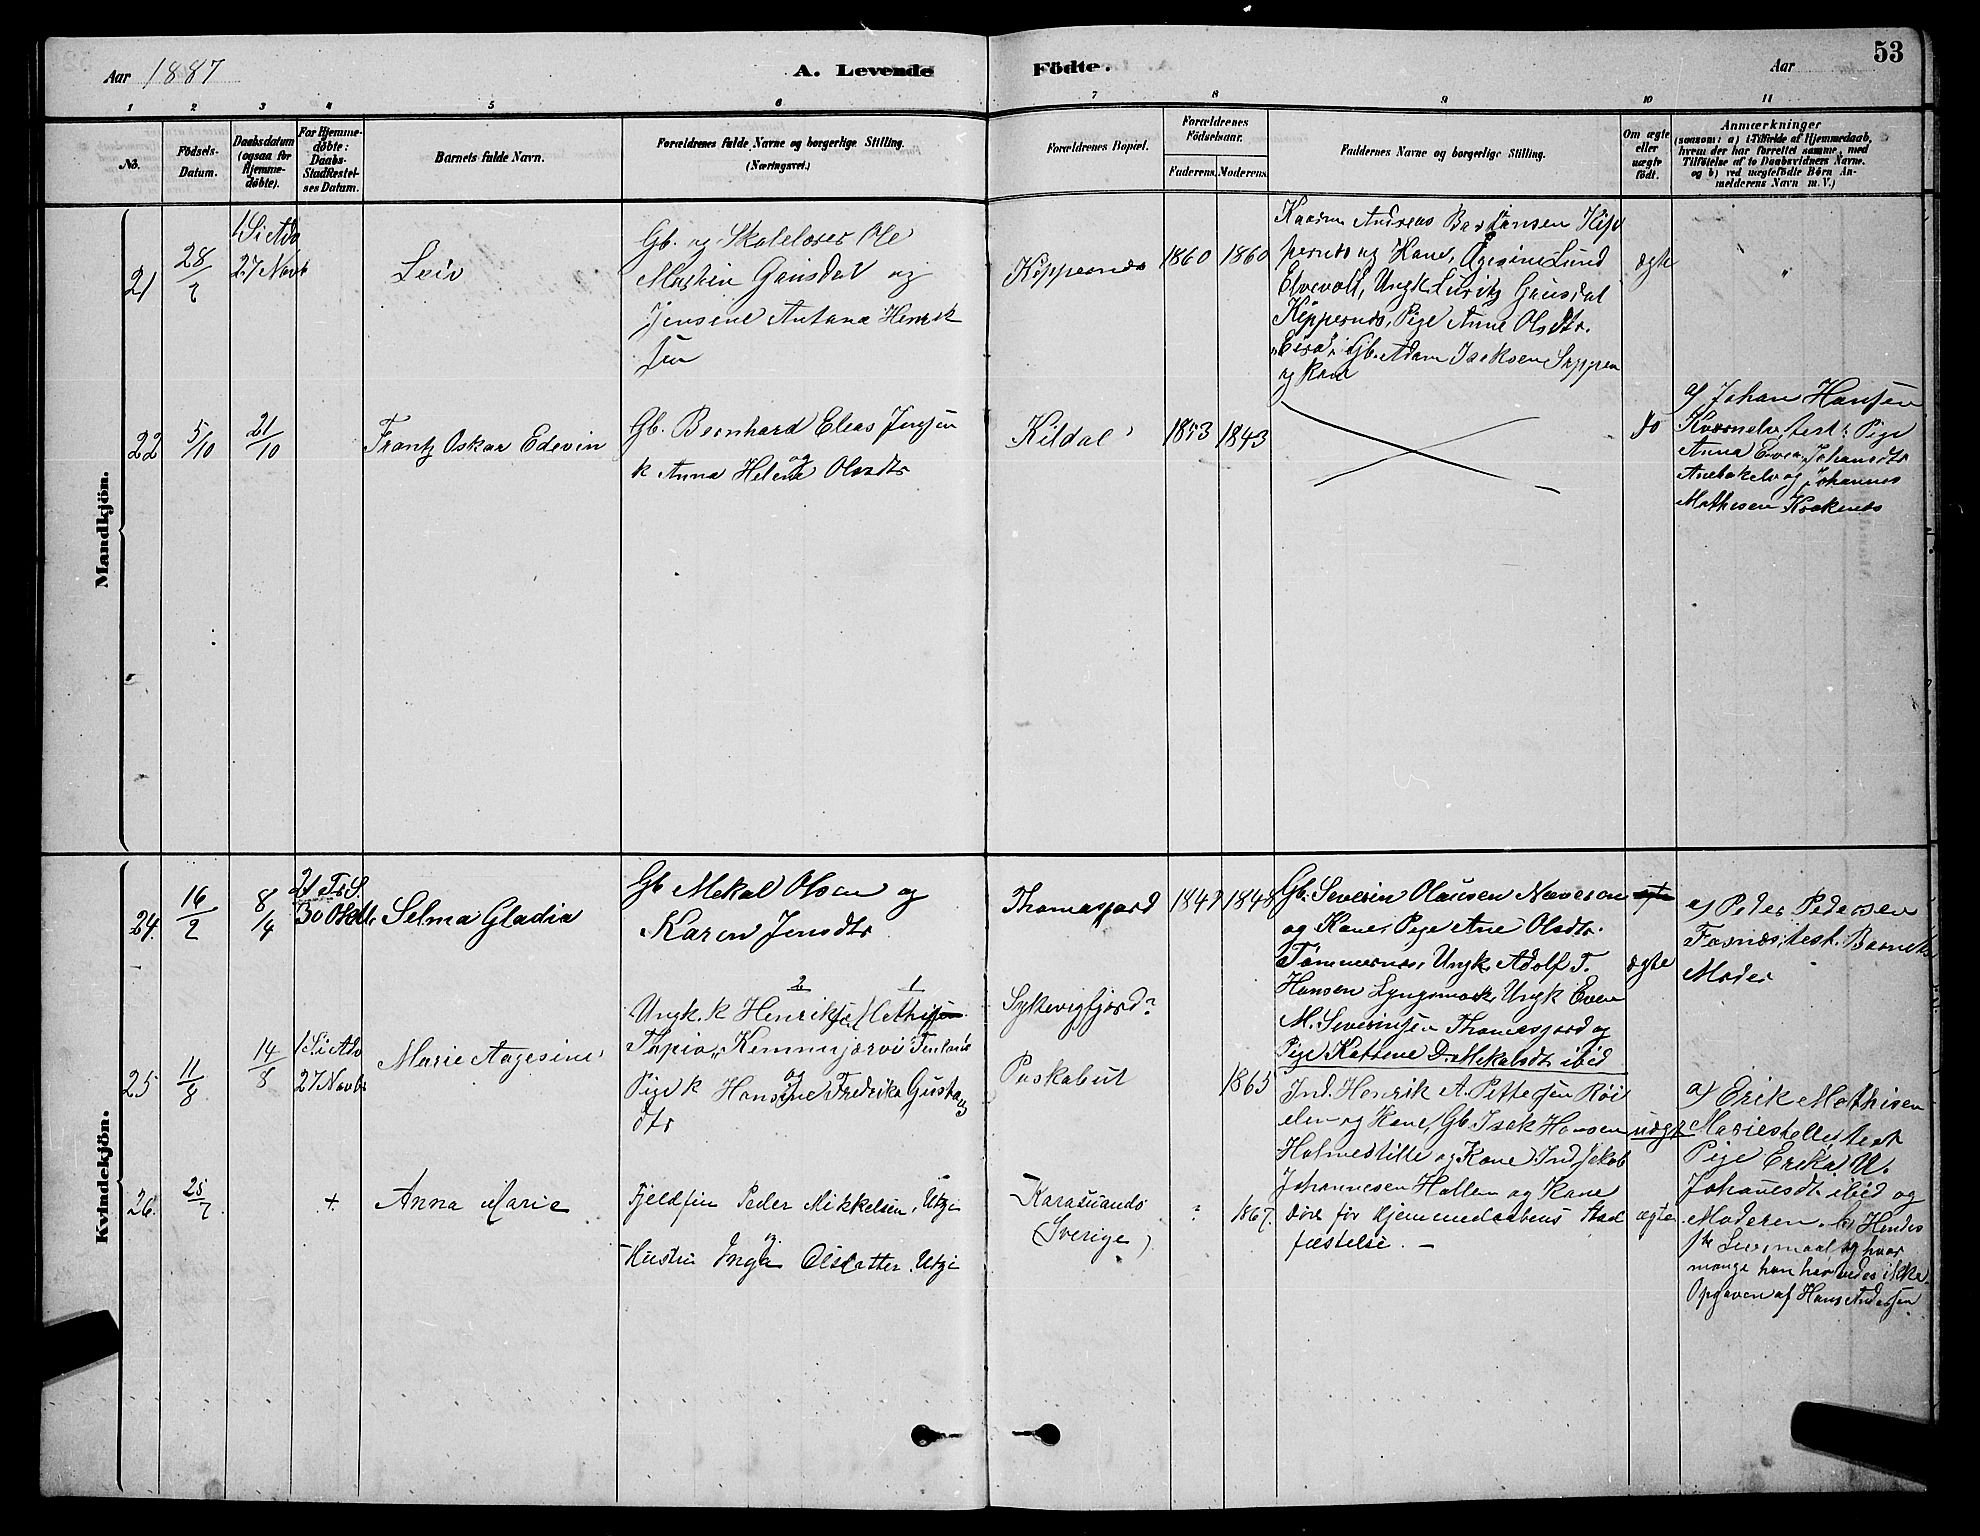 53
Aar 1887
A. Levende
Födte.
Aar
1 2 3 4 5 6 7 8 9 10 11
No.
Födsels-
Datum.
Daabsdatum
(ogsaa for
Hjemme-
døbte).
For Hjemme-
døbte:
Daabs-
Stadfæstel-
ses Datum.
Barnets fulde Navn.
Forældrenes fulde Navne og borgerlige Stilling.
(Næringsvei.)
Forældrenes Bopæl.
Forældrenes
Födselsaar.
Faderens. Moderens.
Faddernes Navne og borgerlige Stilling.
Om ægte
eller
uægte
födt.
Anmærkninger
(saasom: a) i Tilfælde af Hjemmedaab,
hvem der har forrettet samme, med
Tilföielse af to Daabsvidners Navne.
og b) ved uægtefödte Börn An-
melderens Navn m. V.)
Mandkjön.
21
28/7
1 Si Adv
27 Novb
Leiv
Gb. og Skolelærer Ole
Martin Gausdal og
Jensine Antana Henrik
sen
Kippernæs
1860 1860
Andreas Kip
pernæs og Kone, Agesine Lund
Elvevold, Ungk Lurits Gausdal
Kippernæs, Pige Anne Olsdtr.
Gb. Adam Isaksen
og Kone
ægte
"
22
5/10
21/10
Frantz Oskar Edevin
Gb. Bernhard Elias Jensen
og
k Anna Helena Olsdtr
Kildal
1853 1843
do
af Johan Hansen
Kvænelv, test: Pige
Anna Johansdtr
og Johannes
Mathisen Krokenes
Kvindekjön.
24.
16/2
8/4
21 Tr. S.
30 Oktbr
Selma Gladia
Gb Mekal Olsen og
Karen Jensdtr
Thomasjord
1848
Gb. Severin Olausen
og Kone, Pige Ane Olsdtr.
Tømmernes, Ungk. Adolf T.
Hansen Lyngsmark, Ungk Even
M. Severinsen Thomasjord og
Pige D. Mekalsdtr ibid
ægte
af Peder Pedersen
test: Barnets
Moder
25
11/8
14/8
1 Si Adv
27 Novbr
Marie Aagesine
2 1
Ungk. k Henriksen Mathis
Tapio, Kemmijærvi Finland
og
Pige k Hansine Fredrika Gustav
dtr
Paskabut
1865
Ind. Henrik A. Pettersen Röi
elen og Kone, Gb. Isak Hansen
Holmestille og Kone Ind Jakob
Johannesen Hallen og Kone
uægte
af Erik Mathisen
test
Pige Erika U.
Johansdtr ibid og
Moderen. b) Hendes
1ste Leiermaal og hvor
mange han har vides ikke
Opgaven af Hans Andersen
26.
25/7
+
Anna Marie
Fjeldfin Peder Mikkelsen, Utzi
og
Hustru Inga Olsdatter Utzi
Karasuando
(Sverige)
? 1867.
døde før Hjemmedaabens Stad
fæstelse. —
ægte